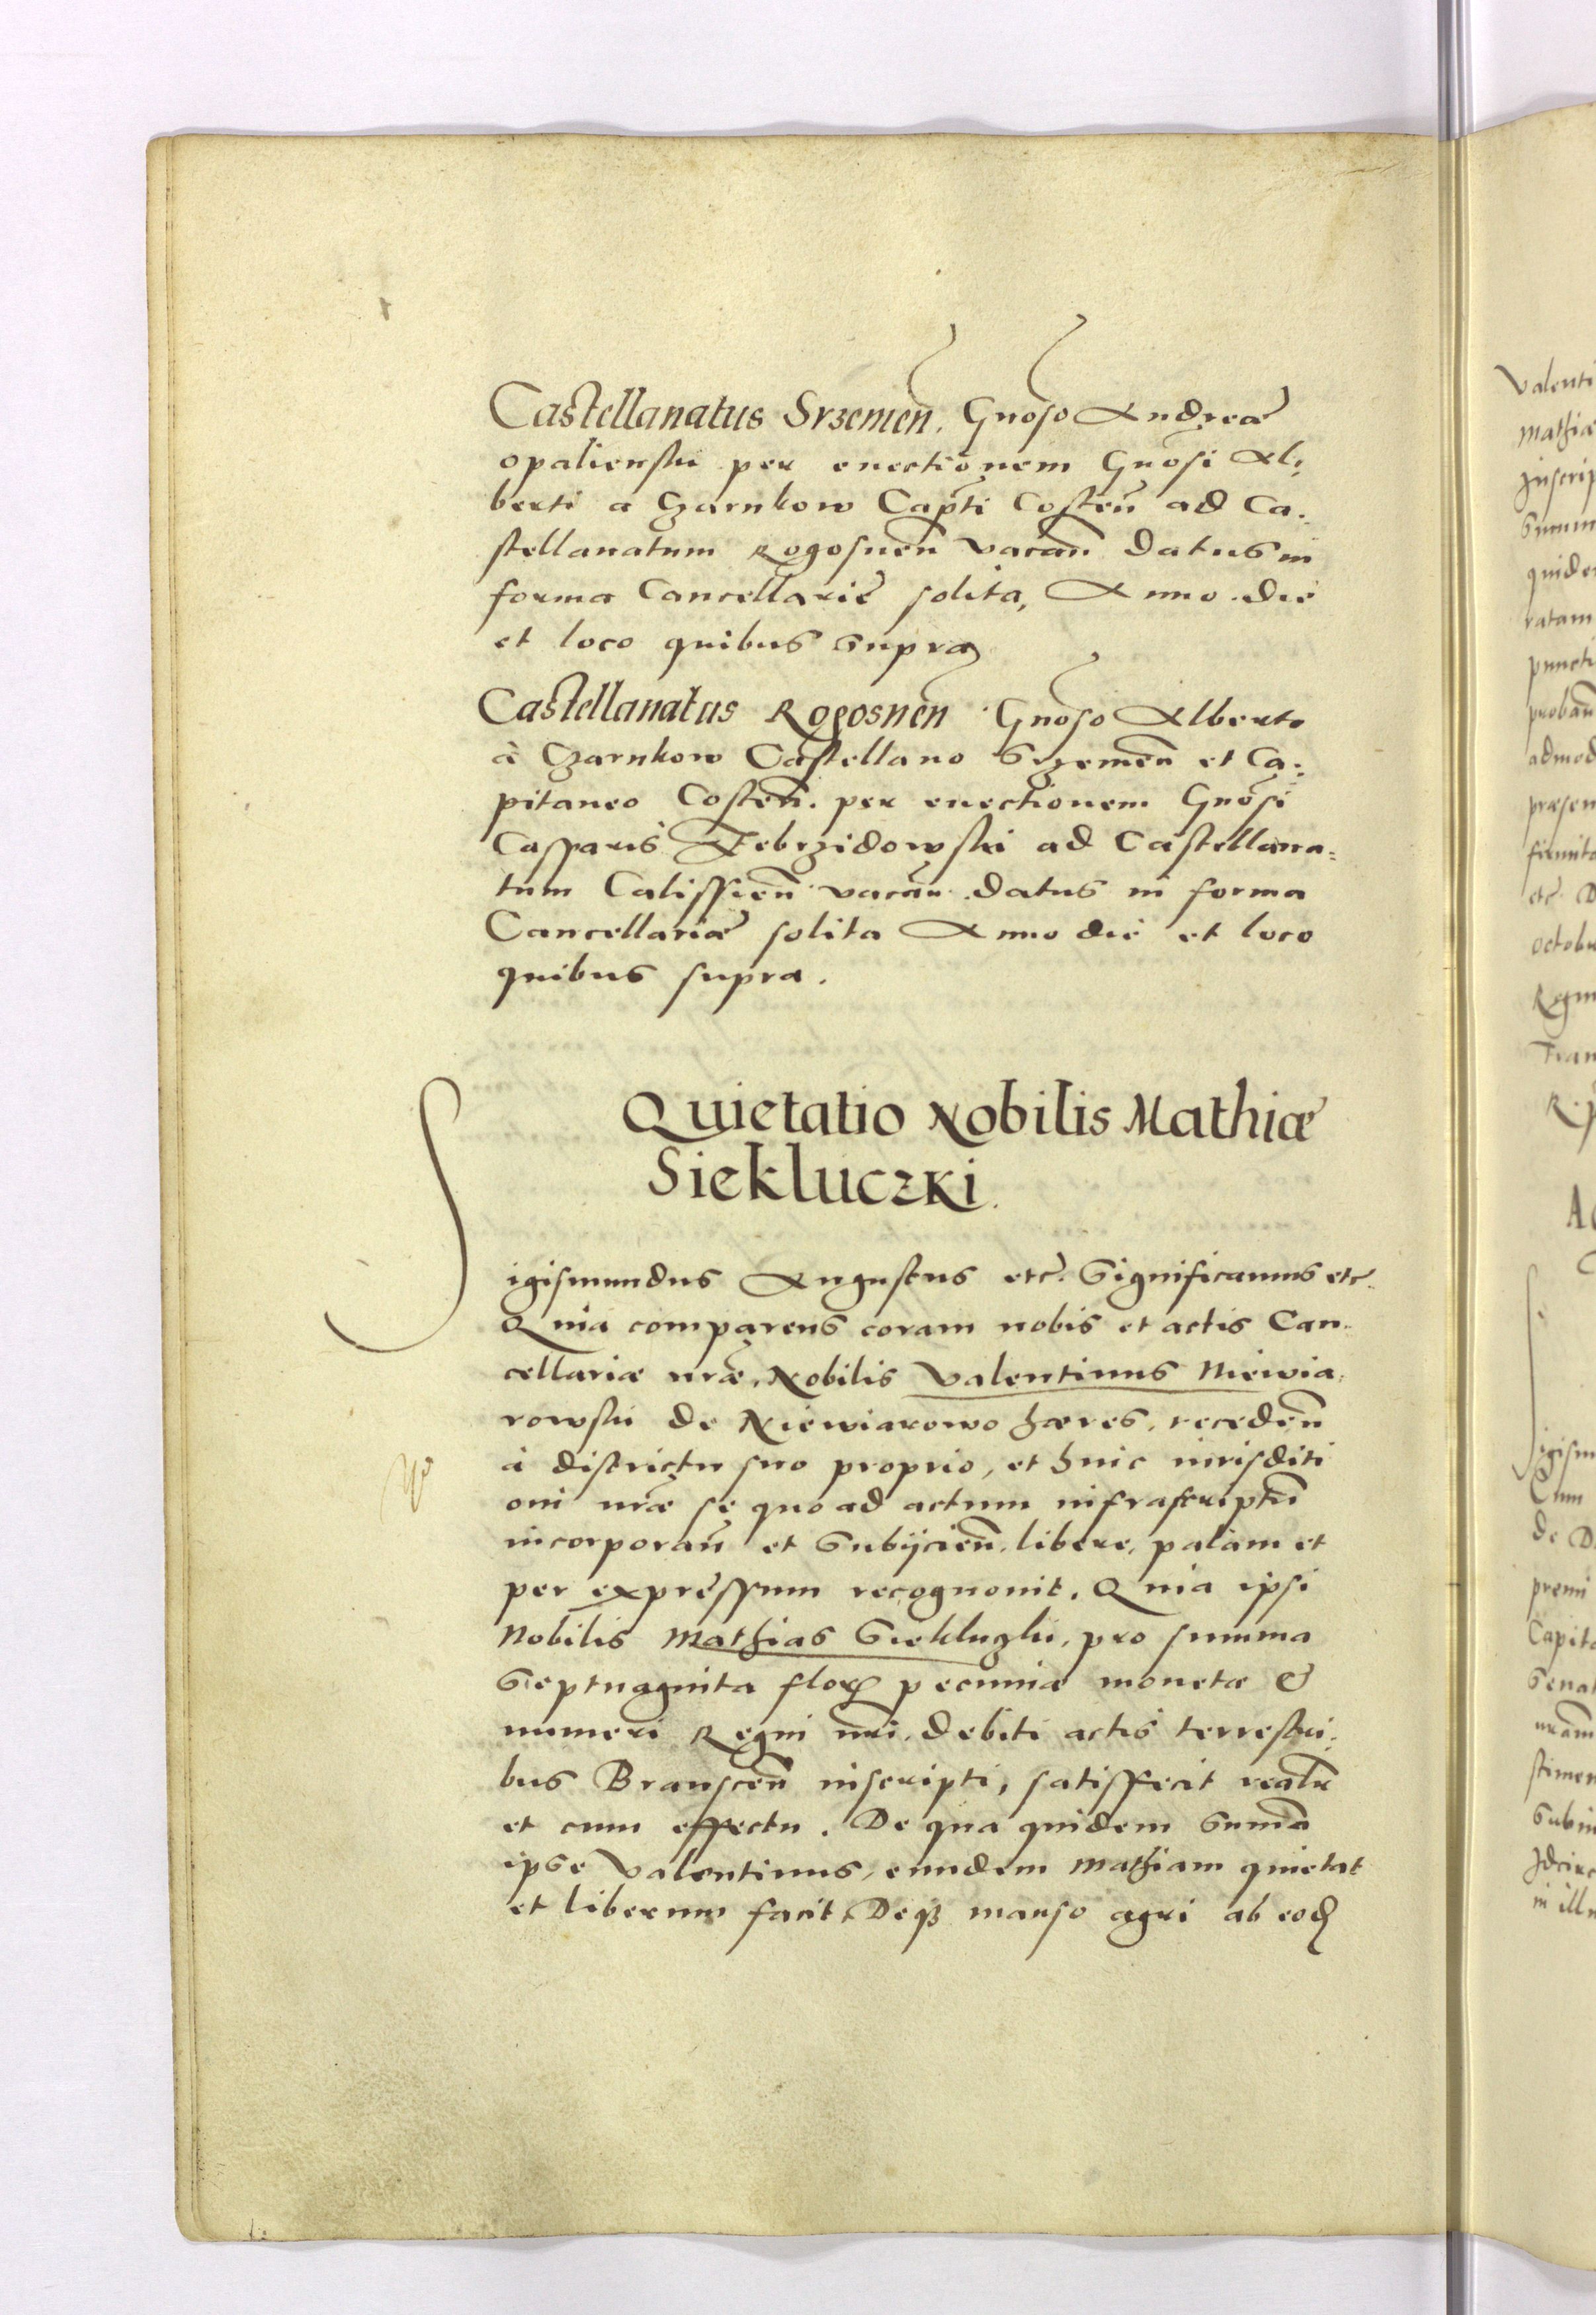 Castellanatus Srzemen̄. Gn̄oso Andreæ
opalienski per euectionem Gn̄osi Al:
berti a Czarnkow Cap̄ti Costen̄ ad Ca:
stellanatum Rogosnen̄ vacan̄ datus in
forma Cancellariæ solita, Anno die
et loco quibus supra
Castellanatus Rogosnen̄ Gn̄oso Alberto
à Czarnkow Castellano Srzemen̄ et Ca:
pitaneo Costen̄. per euectionem Gn̄osi
Casparis Zebrzidowski ad Castellana:
tum Calissien̄ vacan̄ datus in forma
Cancellariæ solita Anno die et loco
quibus supra.
Quietatio Nobilis Mathiæ
Siekluczki.
Sigismundus Augustus etc. Significamus etc.
Quia comparens coram nobis et actis Can:
cellariæ nr̄æ, Nobilis Valentinus Niewia:
rowski de Niewiarowo hæres, receden̄
à districtu suo proprio, et huic iurisditi
oni nr̄æ se quo ad actum infrascriptū
incorporan̄ et subijcien̄, libere, palam et
per expressum recognouit. Quia ipsi
Nobilis Mathias Siekluczki, pro summa
Septuaginta flor pecuniæ monetæ &
numeri Regni nr̄i, debiti actis terrestri:
bus Branscen̄ inscripti, satisfecit realr̄
et cum effectu. De qua quidem summa
ipse Valentinus, eundem Mathiam quietat
et liberum facit, Deq3 manso agri ab eod